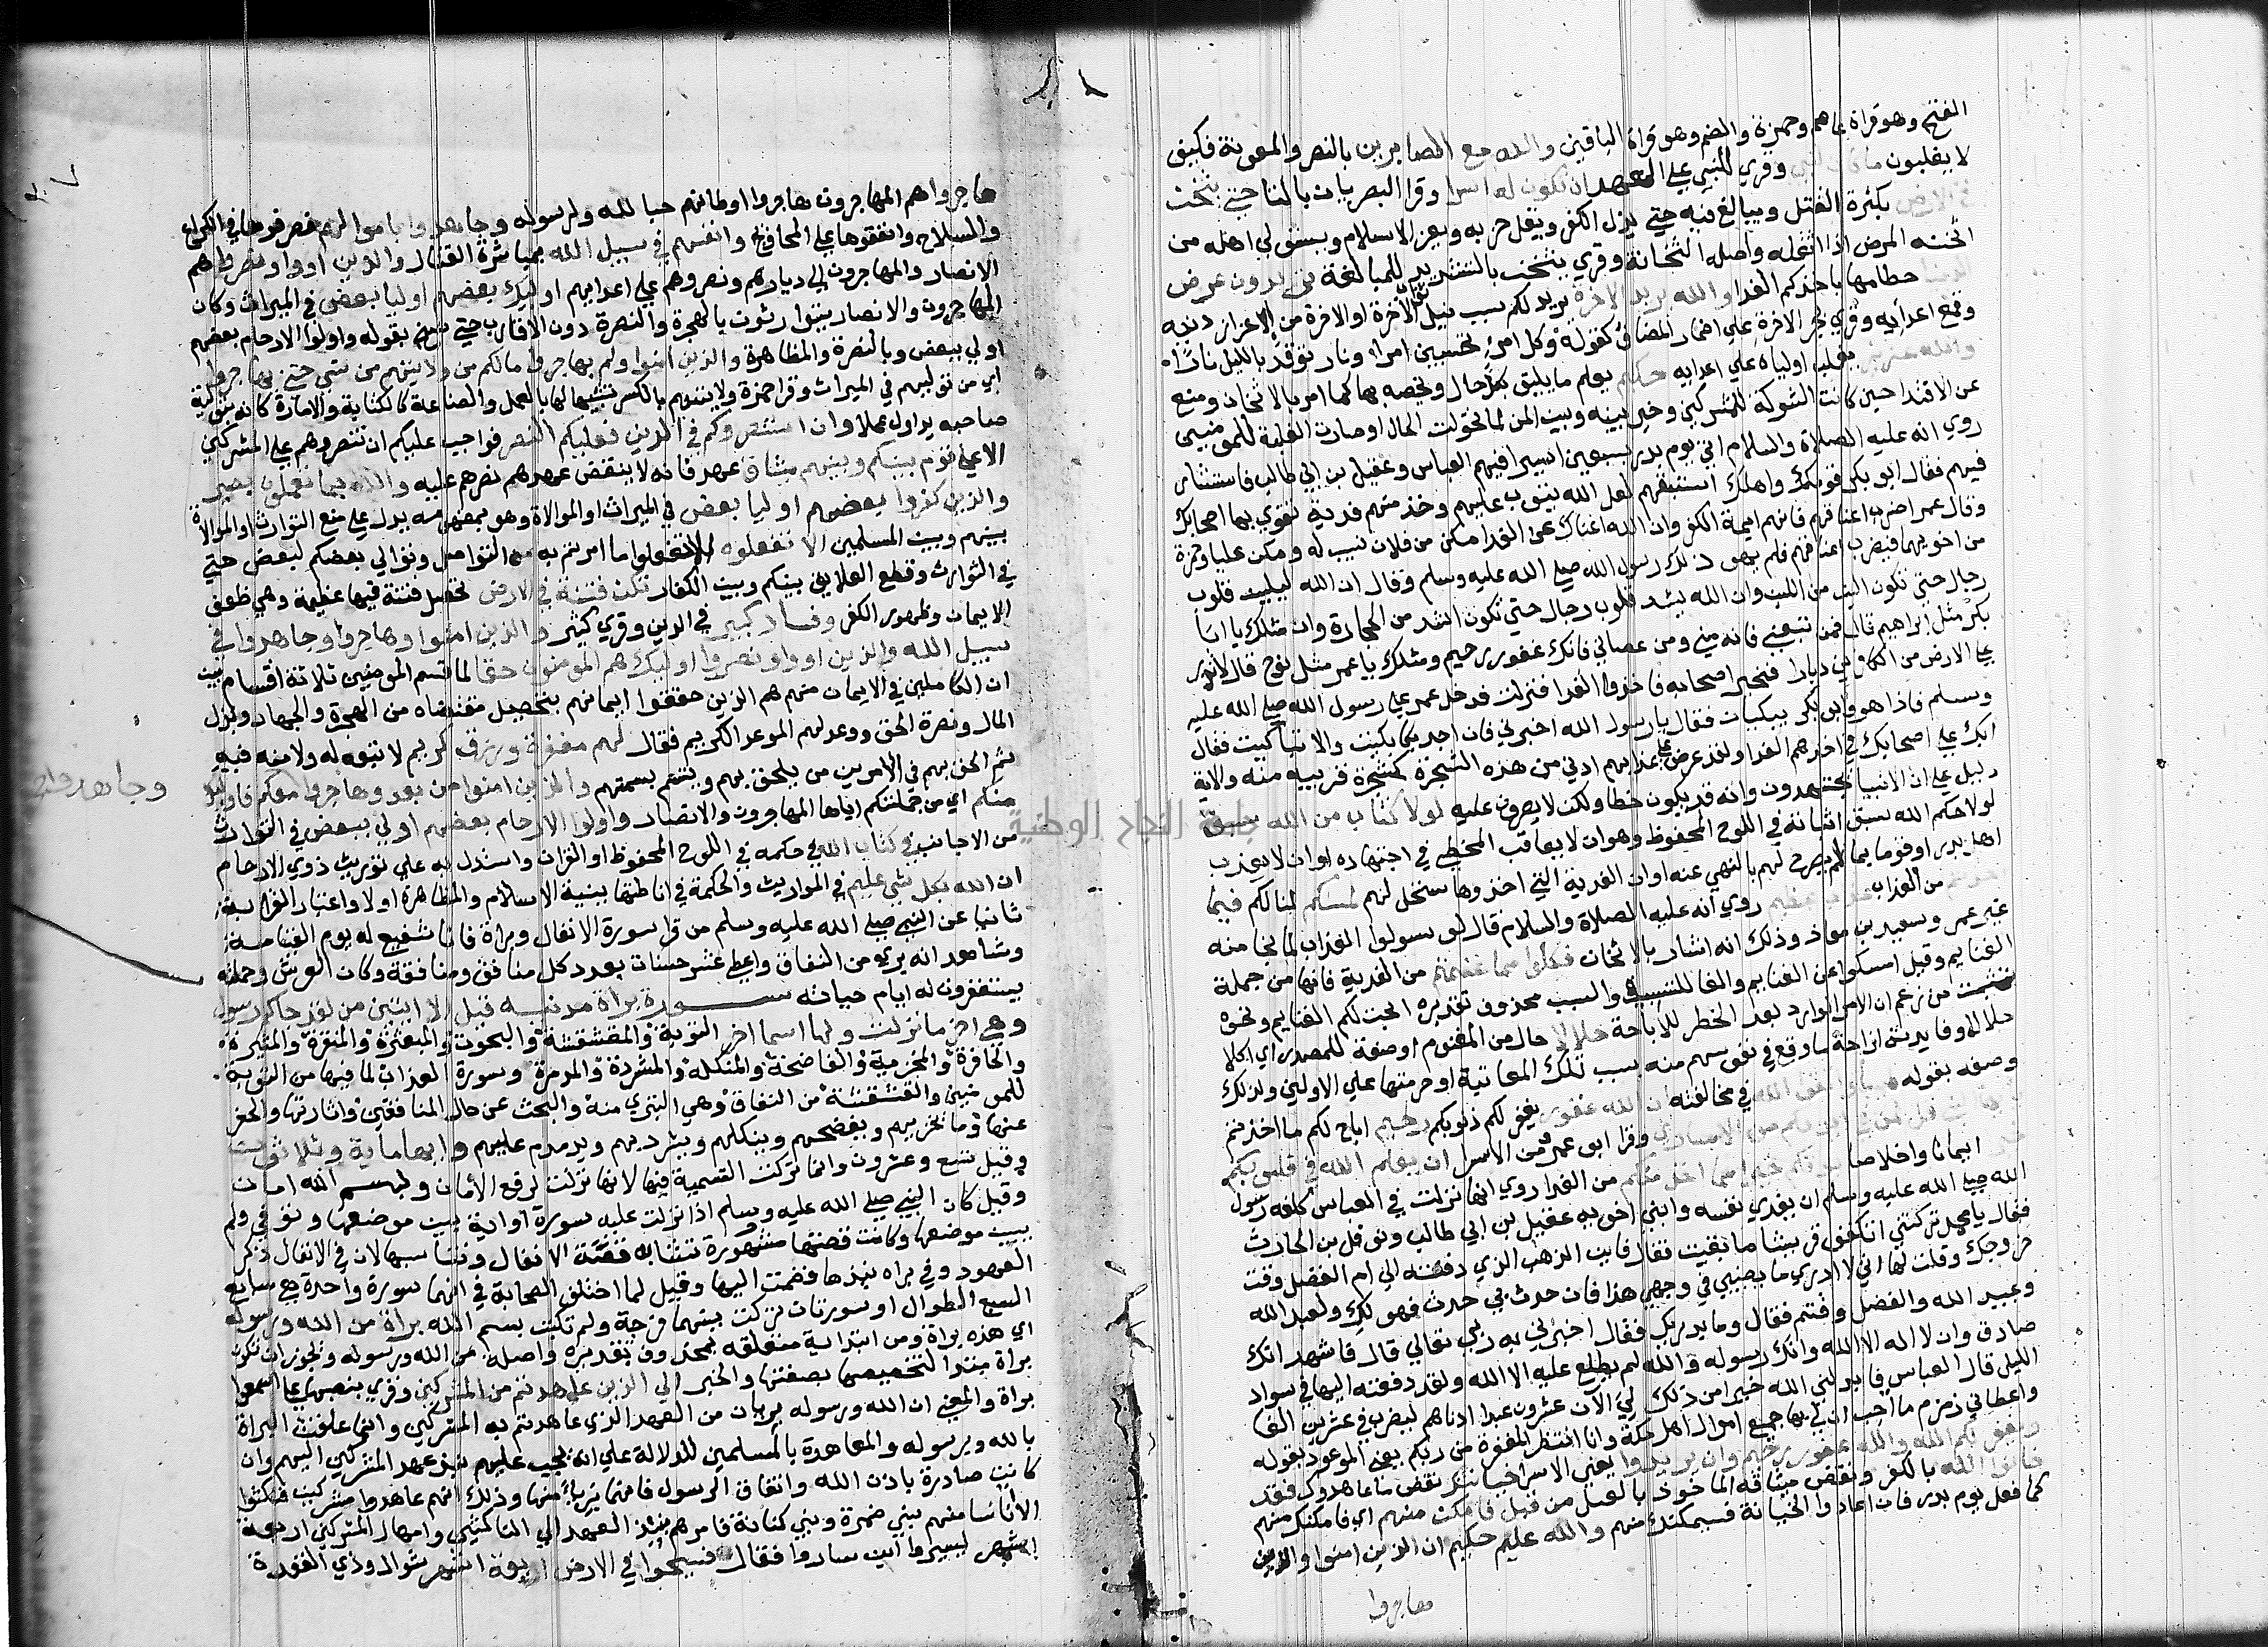 الفتح وهو قراة عاصم وحمزة والضم وهو قراة الباقين والله مع الصابرين بالنصر والمعونة فكيف
لا يغلبون ما كان لنبي وقري للنبي علي العهد ان تكون له اسرا وقرا البصريان بالتا حتي يثخن
في الارض بكثرة القتل ويبالغ فيه حتي يذل الكفر ويقل حزبه ويعز الاسلام ويستولي اهله من
اثخنه المرض اذا اثقله واصله الثخانة وقري يثخن بالتشديد للمبالغة تريدون عرض
الدنيا حطامها باخذكم الفدا والله يريد الاخرة يريد لكم سبب نيل الاخرة او الاخرة من اعزاز دينه
وقمع اعدايه وقري بجر الاخرة علي اضمار المضاف كقوله وكل امرئ تحسبين امراء ونار توقد بالليل نارا
والله عزيز يغلب اولياه علي اعدايه حكيم يعلم ما يليق بكل حال ويخصه بها كما امر بالاثخان ومنع
عن الافتدا حين كانت الشوكة للمشركين وخير بينه وبين المن لما تحولت الحال وصارت الغلبة للمومنين
روي انه عليه الصلاة والسلام اتي يوم بدر بسبعين اسيرا فيهم العباس وعقيل بن ابي طالب فاستشار
فيهم فقال ابو بكر قومك واهلك استبقهم لعل الله يتوب عليهم وخذ منهم فدية تقوي بها اصحابك
وقال عمر اضرب اعناقهم فانهم ايمة الكفر وان الله اغناك عن الفدا مكن من فلان نسيب له ومكن عليا وحمزة
من اخويهما فيضرب اعناقهم فلم يهو ذلك رسول الله صلي الله عليه وسلم وقال ان الله ليلين قلوب
رجال حتي تكون الين من اللبن وان الله ليشد قلوب رجال حتي تكون اشد من الحجارة وان مثلك يا ابا
بكر مثل ابراهيم قال فمن تبعني فانه مني ومن عصاني فانك غفور رحيم ومثلك يا عمر مثل نوح قال لا تذر
علي الارض من الكافرين ديارا فخير اصحابه فاخذوا الفدا فنزلت فدخل عمر علي رسول الله صلي الله عليه
وسلم فاذا هو وابو بكر يبكيان فقال يا رسول الله اخبرني فان اجد بكا بكيت والا تباكيت فقال
ابك علي اصحابك في اخذهم الفدا ولقد عرض علي عذابهم ادني من هذه الشجرة لشجرة قريبة منه والاية
دليل علي ان الانبيا يجتهدون وانه قد يكون خطا ولكن لا يقرون عليه لولا كتاب من الله سبق
لولا حكم الله سبق اثباته في اللوح المحفوظ وهو ان لا يعاقب المخطي في اجتهاده او ان لا يعذب
اهل بدر او قوما بما لم يصرح لهم بالنهي عنه او ان الفدية التي اخذوها ستحل لهم لمسكم لنالكم فيما
اخذتم من الفدا عذاب عظيم روي انه عليه الصلاة والسلام قال لو نزل العذاب لما نجا منه
غير عمر وسعد بن معاذ وذلك انه اشار بالاثخان فكلوا مما غنمتم من الفدية فانها من جملة
الغنايم وقيل امسكوا عن الغنايم والفا للتسبيب والسبب محذوف تقديره ابحت لكم الغنايم ونحوه
تشبث من زعم ان الامر الوارد بعد الحظر للاباحة حلالا حال من المغنوم او صفة للمصدر اي اكلا
حلالا وفايدته ازاحة ما وقع في نفوسهم منه بسبب تلك المعاتبة او حرمتها علي الاولين ولذلك
وصفه بقوله طيبا واتقوا الله في مخالفته ان الله غفور يغفر لكم ذنوبكم رحيم اباح لكم ما اخذتم
يا ايها النبي قل لمن في ايديكم من الاساري وقرا ابو عمرو من الاسرا ان يعلم الله في قلوبكم
خيرا ايمانا واخلاصا يوتكم خيرا مما اخذ منكم من الفدا روي انها نزلت في العباس كلفه رسول
الله صلي الله عليه وسلم ان يفدي نفسه وابني اخويه عقيل بن ابي طالب ونوفل بن الحارث
فقال يا محمد تركتني اتكفف قريشا ما بقيت فقال فاين الذهب الذي دفعته الي ام الفضل وقت
خروجك وقلت لها اني لا ادري ما يصيبني في وجهي هذا فان حدث بي حدث فهو لك ولعبد الله
وعبيد الله والفضل وقثم فقال وما يدريك فقال اخبرني به ربي تعالي قال فاشهد انك
صادق وان لا اله الا الله وانك رسوله والله لم يطلع عليه الا الله ولقد دفعته اليها في سواد
الليل قال العباس فابدلني الله خيرا من ذلك لي الآن عشرون عبدا ادناهم ليضرب في عشرين الفا
واعطاني زمزم ما احب ان لي بها جميع اموال اهل مكة وانا انتظر المغفرة من ربكم يعني الموعود بقوله
ويغفر لكم الله والله غفور رحيم وان يريدوا يعني الاسرا خيانتك نقض ما عاهدوك فقد
خانوا الله بالكفر ونقض ميثاقه الماخوذ بالعقل من قبل فامكن منهم اي فامكنك منهم
كما فعل يوم بدر فان اعادوا الخيانة فسيمكنك منهم والله عليم حكيم ان الذين امنوا والذين
هاجروا
هاجروا هم المهاجرون هاجروا اوطانهم حبا لله ولرسوله وجاهدوا باموالهم فصرفوها في الكراع
والسلاح وانفقوها علي المحاويج وانفسهم في سبيل الله بمباشرة القتال والذين اووا ونصروا هم
الانصار والمهاجرون الي ديارهم ونصروهم علي اعدايهم اوليك بعضهم اوليا بعض في الميراث وكان
المهاجرون والانصار يتوارثون بالهجرة والنصرة دون الاقارب حتي نسخ بقوله واولوا الارحام بعضهم
اولي ببعض وبالنصرة والمظاهرة والذين امنوا ولم يهاجروا مالكم من ولايتهم من شي حتي يهاجروا
اي من توليهم في الميراث وقرا حمزة ولايتهم بالكسر تشبيها لها بالعمل والصناعة كالكتابة والامارة كانه بتوليه
صاحبه يزاول عملا وان استنصروكم في الدين فعليكم النصر فواجب عليكم ان تنصروهم علي المشركين
الا علي قوم بينكم وبينهم ميثاق عهد فانه لا ينقض عهدهم نصرهم عليه والله بما تعملون بصير
والذين كفروا بعضهم اوليا بعض في الميراث او الموالاة وهو بمفهومه يدل علي منع التوارث او الموالاة
بينهم وبين المسلمين الا تفعلوه الا تفعلوا ما امرتم به من التواصل وتوالي بعضكم لبعض حتي
في التوارث وقطع العلايق بينكم وبين الكفار تكن فتنة في الارض تحصل فتنة فيها عظيمة وهي ضعف
الايمان وظهور الكفر وفساد كبير في الدين وقري كثير والذين امنوا وهاجروا وجاهدوا في
سبيل الله والذين اووا ونصروا اوليك هم المومنون حقا لما قسم المومنين ثلاثة اقسام بين
ان الكاملين في الايمان منهم هم الذين حققوا ايمانهم بتحصيل مقتضاه من الهجرة والجهاد وبذل
المال ونصرة الحق ووعد لهم الموعد الكريم فقال لهم مغفرة ورزق كريم لا تبعه له ولا منه فيه
ثم الحق بهم في الامرين من يلحق بهم ويتسم بسمتهم والذين امنوا من بعد وهاجروا معكم فاوليك
وجاهدوا
منكم اي من جملتكم ايها المهاجرون والانصار واولوا الارحام بعضهم اولي ببعض في التوارث
من الاجانب في كتاب الله في حكمه في اللوح المحفوظ او القران واستدل به علي توريث ذوي الارحام
ان الله بكل شي عليم في المواريث والحكمة في اناطتها بنسبة الاسلام والمظاهرة اولا واعتبار القرابة
ثانيا عن النبي صلي الله عليه وسلم من قرا سورة الانفال وبراة فانا شفيع له يوم القيامة
وشاهد انه بري من النفاق واعطي عشر حسنات بعدد كل منافق ومنافقة وكان العرش وحملته
يستغفرون له ايام حياته سورة براة مدنية قيل الا ايتين من لقد جاكم رسول
وهي اخر ما نزلت ولها اسما اخر التوبة والمقشقشة والبحوث والمبعثرة والمنقرة والمثيرة
والحافرة والمخزية والفاضحة والمنكلة والمشردة والمدمرة وسورة العذاب لما فيها من التوبة
للمومنين والقشقشة من النفاق وهي التبري منه والبحث عن حال المنافقين واثارتها والحفر
عنها وما يخزيهم ويفضحهم وينكلهم ويشردهم ويدمدم عليهم وايها ماية وثلاثون
وقيل تسع وعشرون وانما تركت التسمية فيها لانها نزلت لرفع الأمان وبسم الله امان
وقيل كان النبي صلي الله عليه وسلم اذا نزلت عليه سورة او اية بين موضعها وتوفي ولم
يبين موضعها وكانت قصتها مشهورة تشابه قصة الانفال وتناسبها لان في الانفال ذكر
العهود وفي براه نبذها فضمت اليها وقيل لما اختلف الصحابة في انهما سورة واحدة هي سابع
السبع الطوال او سورتان تركت بينهما فرجة ولم تكتب بسم الله براة من الله ورسوله
اي هذه براة ومن ابتدايية متعلقه بمحذوف تقديره واصلة من الله ورسوله ويجوز ان تكون
براة مبتدا لتخصيصها بصفتها والخبر الي الذين عاهدتم من المشركين وقري بنصبها علي اسمعوا
براة والمعني ان الله ورسوله بريان من العهد الذي عاهدتم به المشركين وانما علقت البراة
بالله وبرسوله والمعاهدة بالمسلمين للدلالة علي انه يجب عليهم نبذ عهد المشركين اليهم وان
كانت صادرة باذن الله واتفاق الرسول فانهما بريا منها وذلك انهم عاهدوا مشركين فنكثوا
الا اناسا منهم بني ضمرة وبني كنانة فامرهم بنبذ العهد الي الناكثين وامهال المشركين اربعة
اشهر ليسيروا اين ساروا فقال فسيحوا في الارض اربعة اشهر شوال وذي القعدة
جامعة النجاح الوطنية